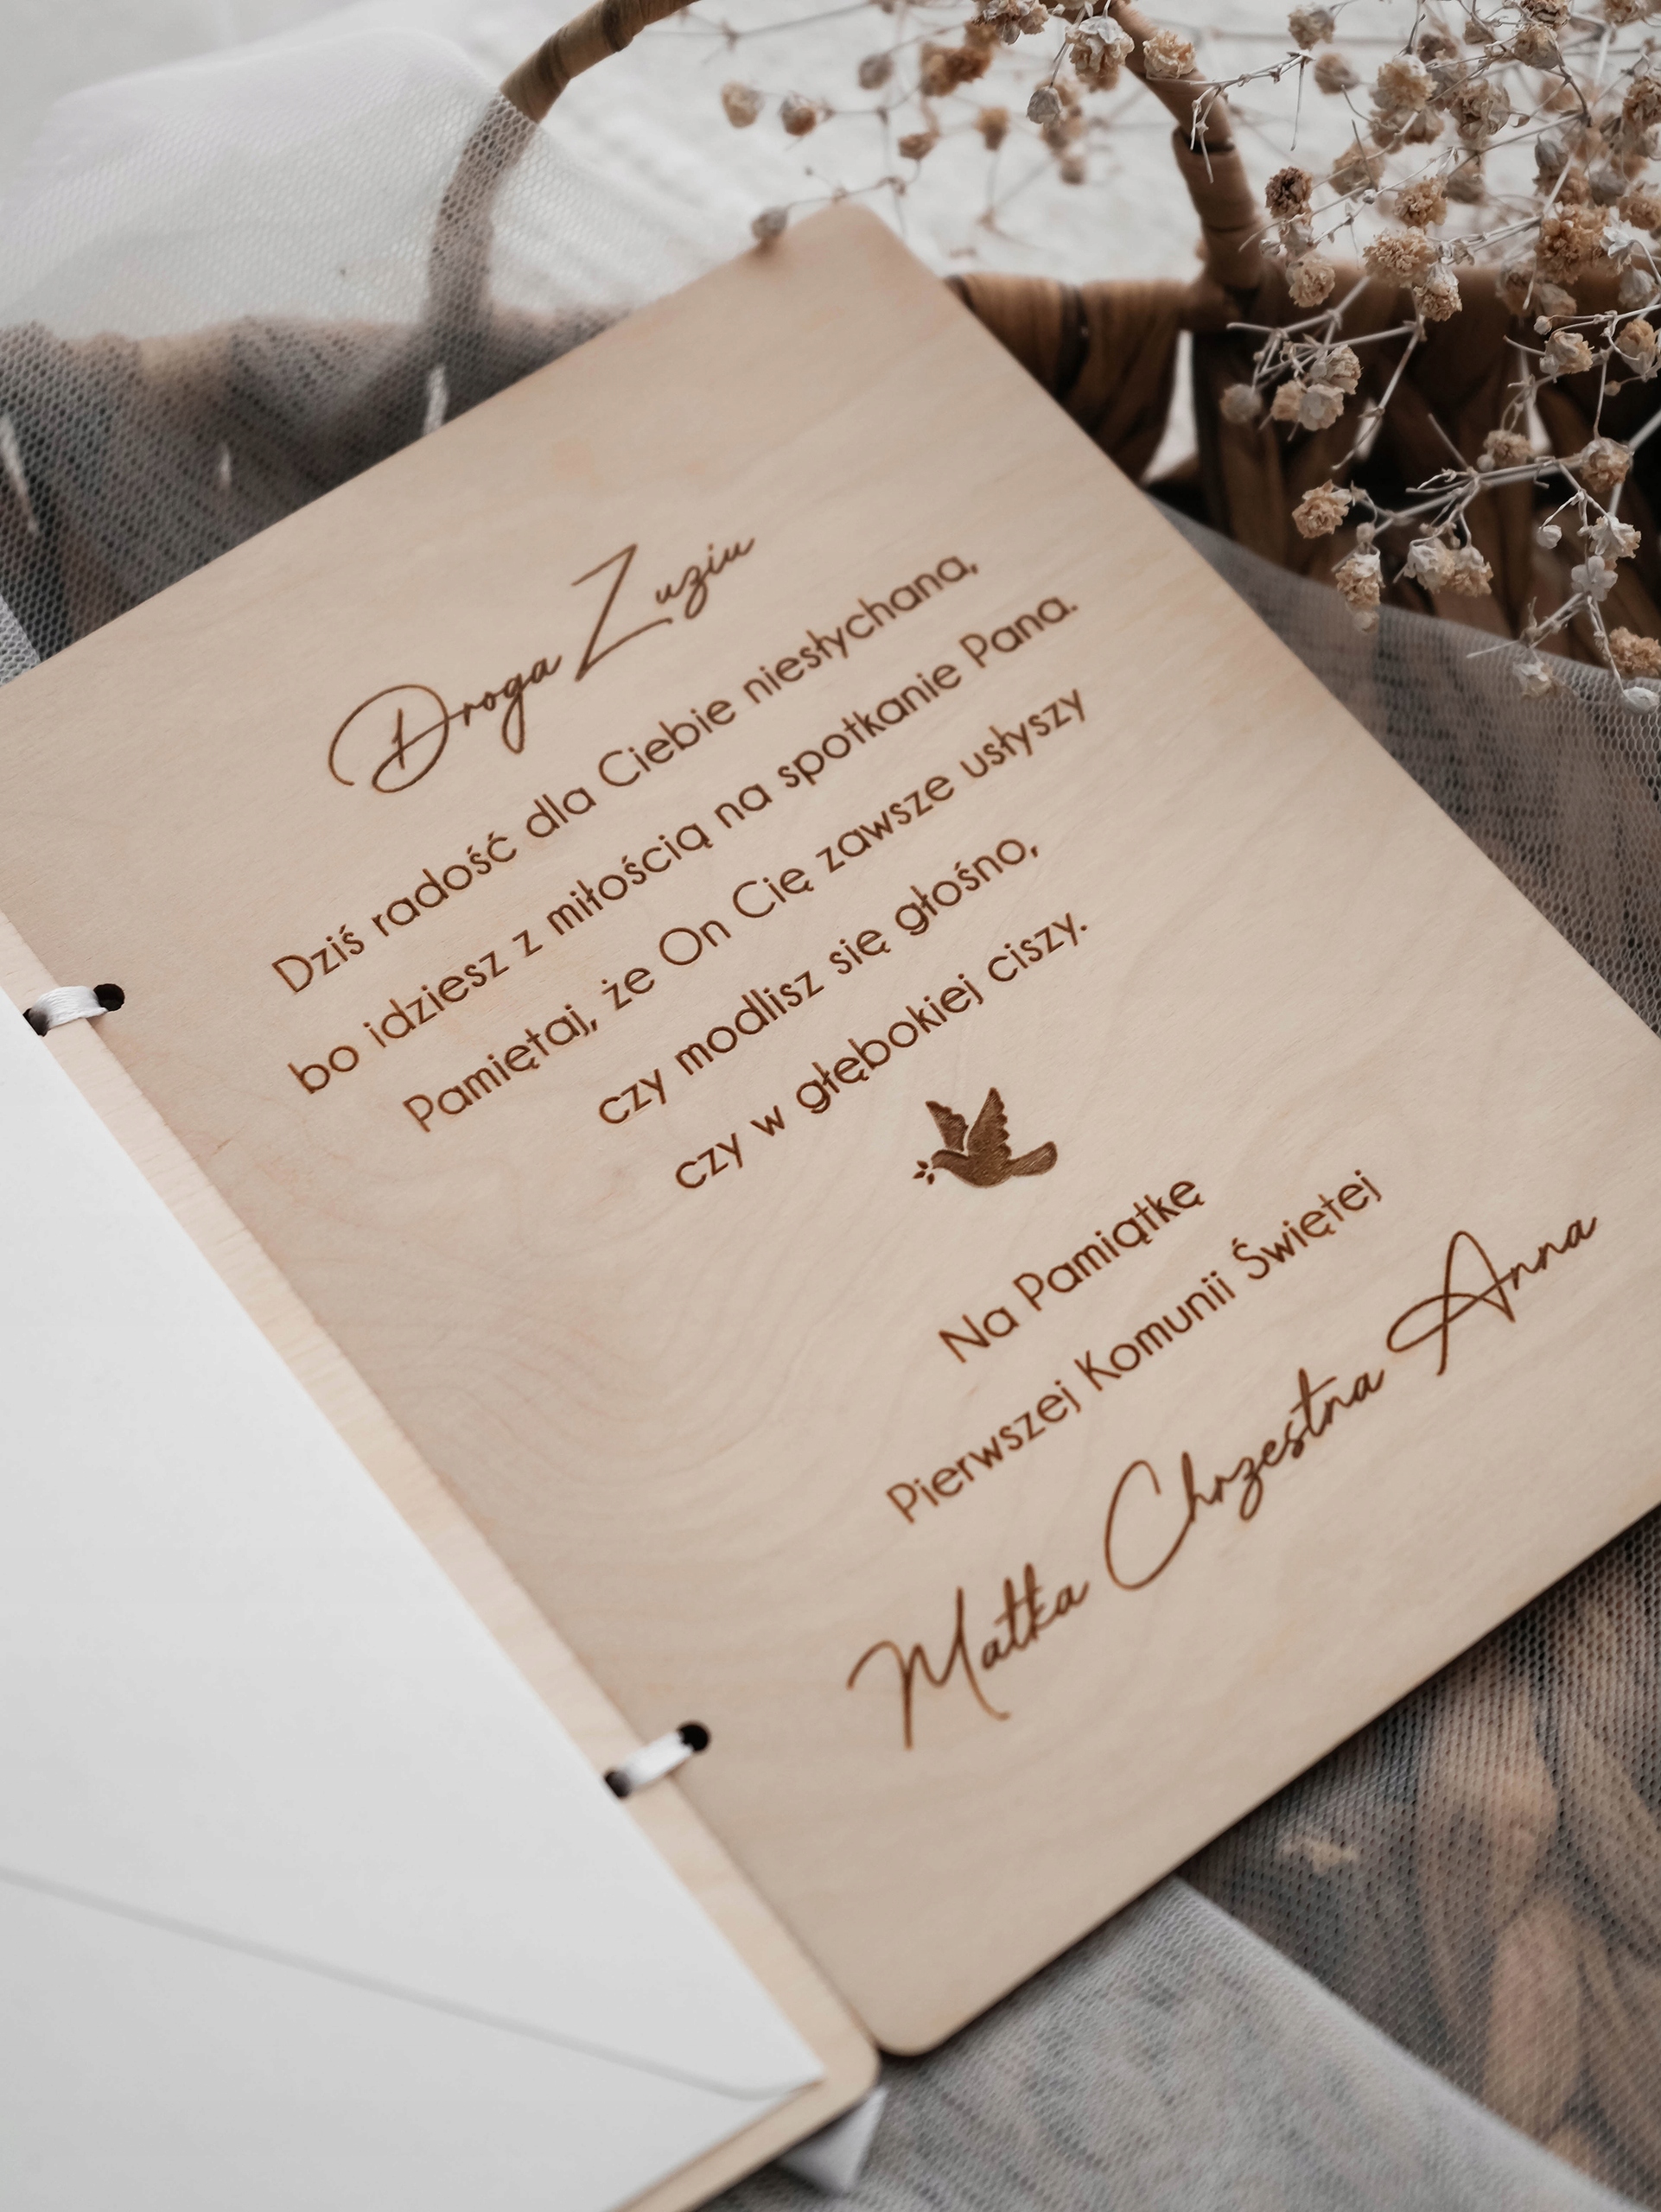 Droga Zuziu
Dziś radość dla Ciebie niesłychana,
bo idziesz z miłością na spotkanie Pana.
Pamiętaj, że On Cię zawsze usłyszy
czy modlisz się głośno,
czy w głębokiej ciszy.
Na Pamiątkę
Pierwszej Komunii Świętej
Matka Chrzestna Anna